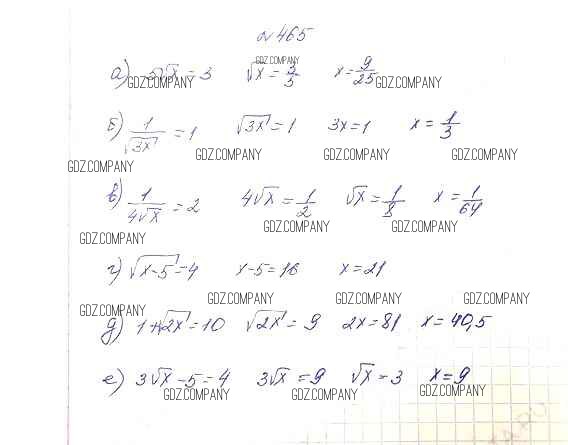 №465
GDZ.COMPANY
а) 5√x = 3 √x = 3/5 x = 9/25
GDZ.COMPANY GDZ.COMPANY
б) 1/√3x = 1 √3x = 1 3x = 1 x = 1/3
GDZ.COMPANY GDZ.COMPANY GDZ.COMPANY GDZ.COMPANY
в) 1/4√x = 2 4√x = 1/2 √x = 1/8 x = 1/64
GDZ.COMPANY GDZ.COMPANY GDZ.COMPANY
г) √x-5 = 4 x-5=16 x=21
GDZ.COMPANY GDZ.COMPANY GDZ.COMPANY GDZ.COMPANY
д) 1+√2x = 10 √2x = 9 2x=81 x=40,5
е) 3√x - 5 = 4 3√x = 9 √x = 3 x=9
GDZ.COMPANY GDZ.COMPANY GDZ.COMPANY